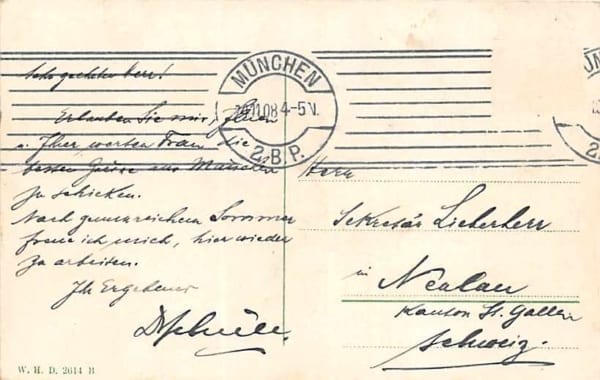 Sehr geehrter Herr!
Erlauben Sie mir, Ihnen
u. Ihrer werten Frau die
besten Grüsse aus München
zu schicken.
Nach genussreichem Sommer
freue ich mich, hier wieder
zu arbeiten.
Ihr Ergebener
MÜNCHEN
11.08 4-5 V.
2. B. P.
Herrn
Sekretär Lieberherr
in
Kanton St. Gallen
Schweiz.
W. H. D. 2614 B